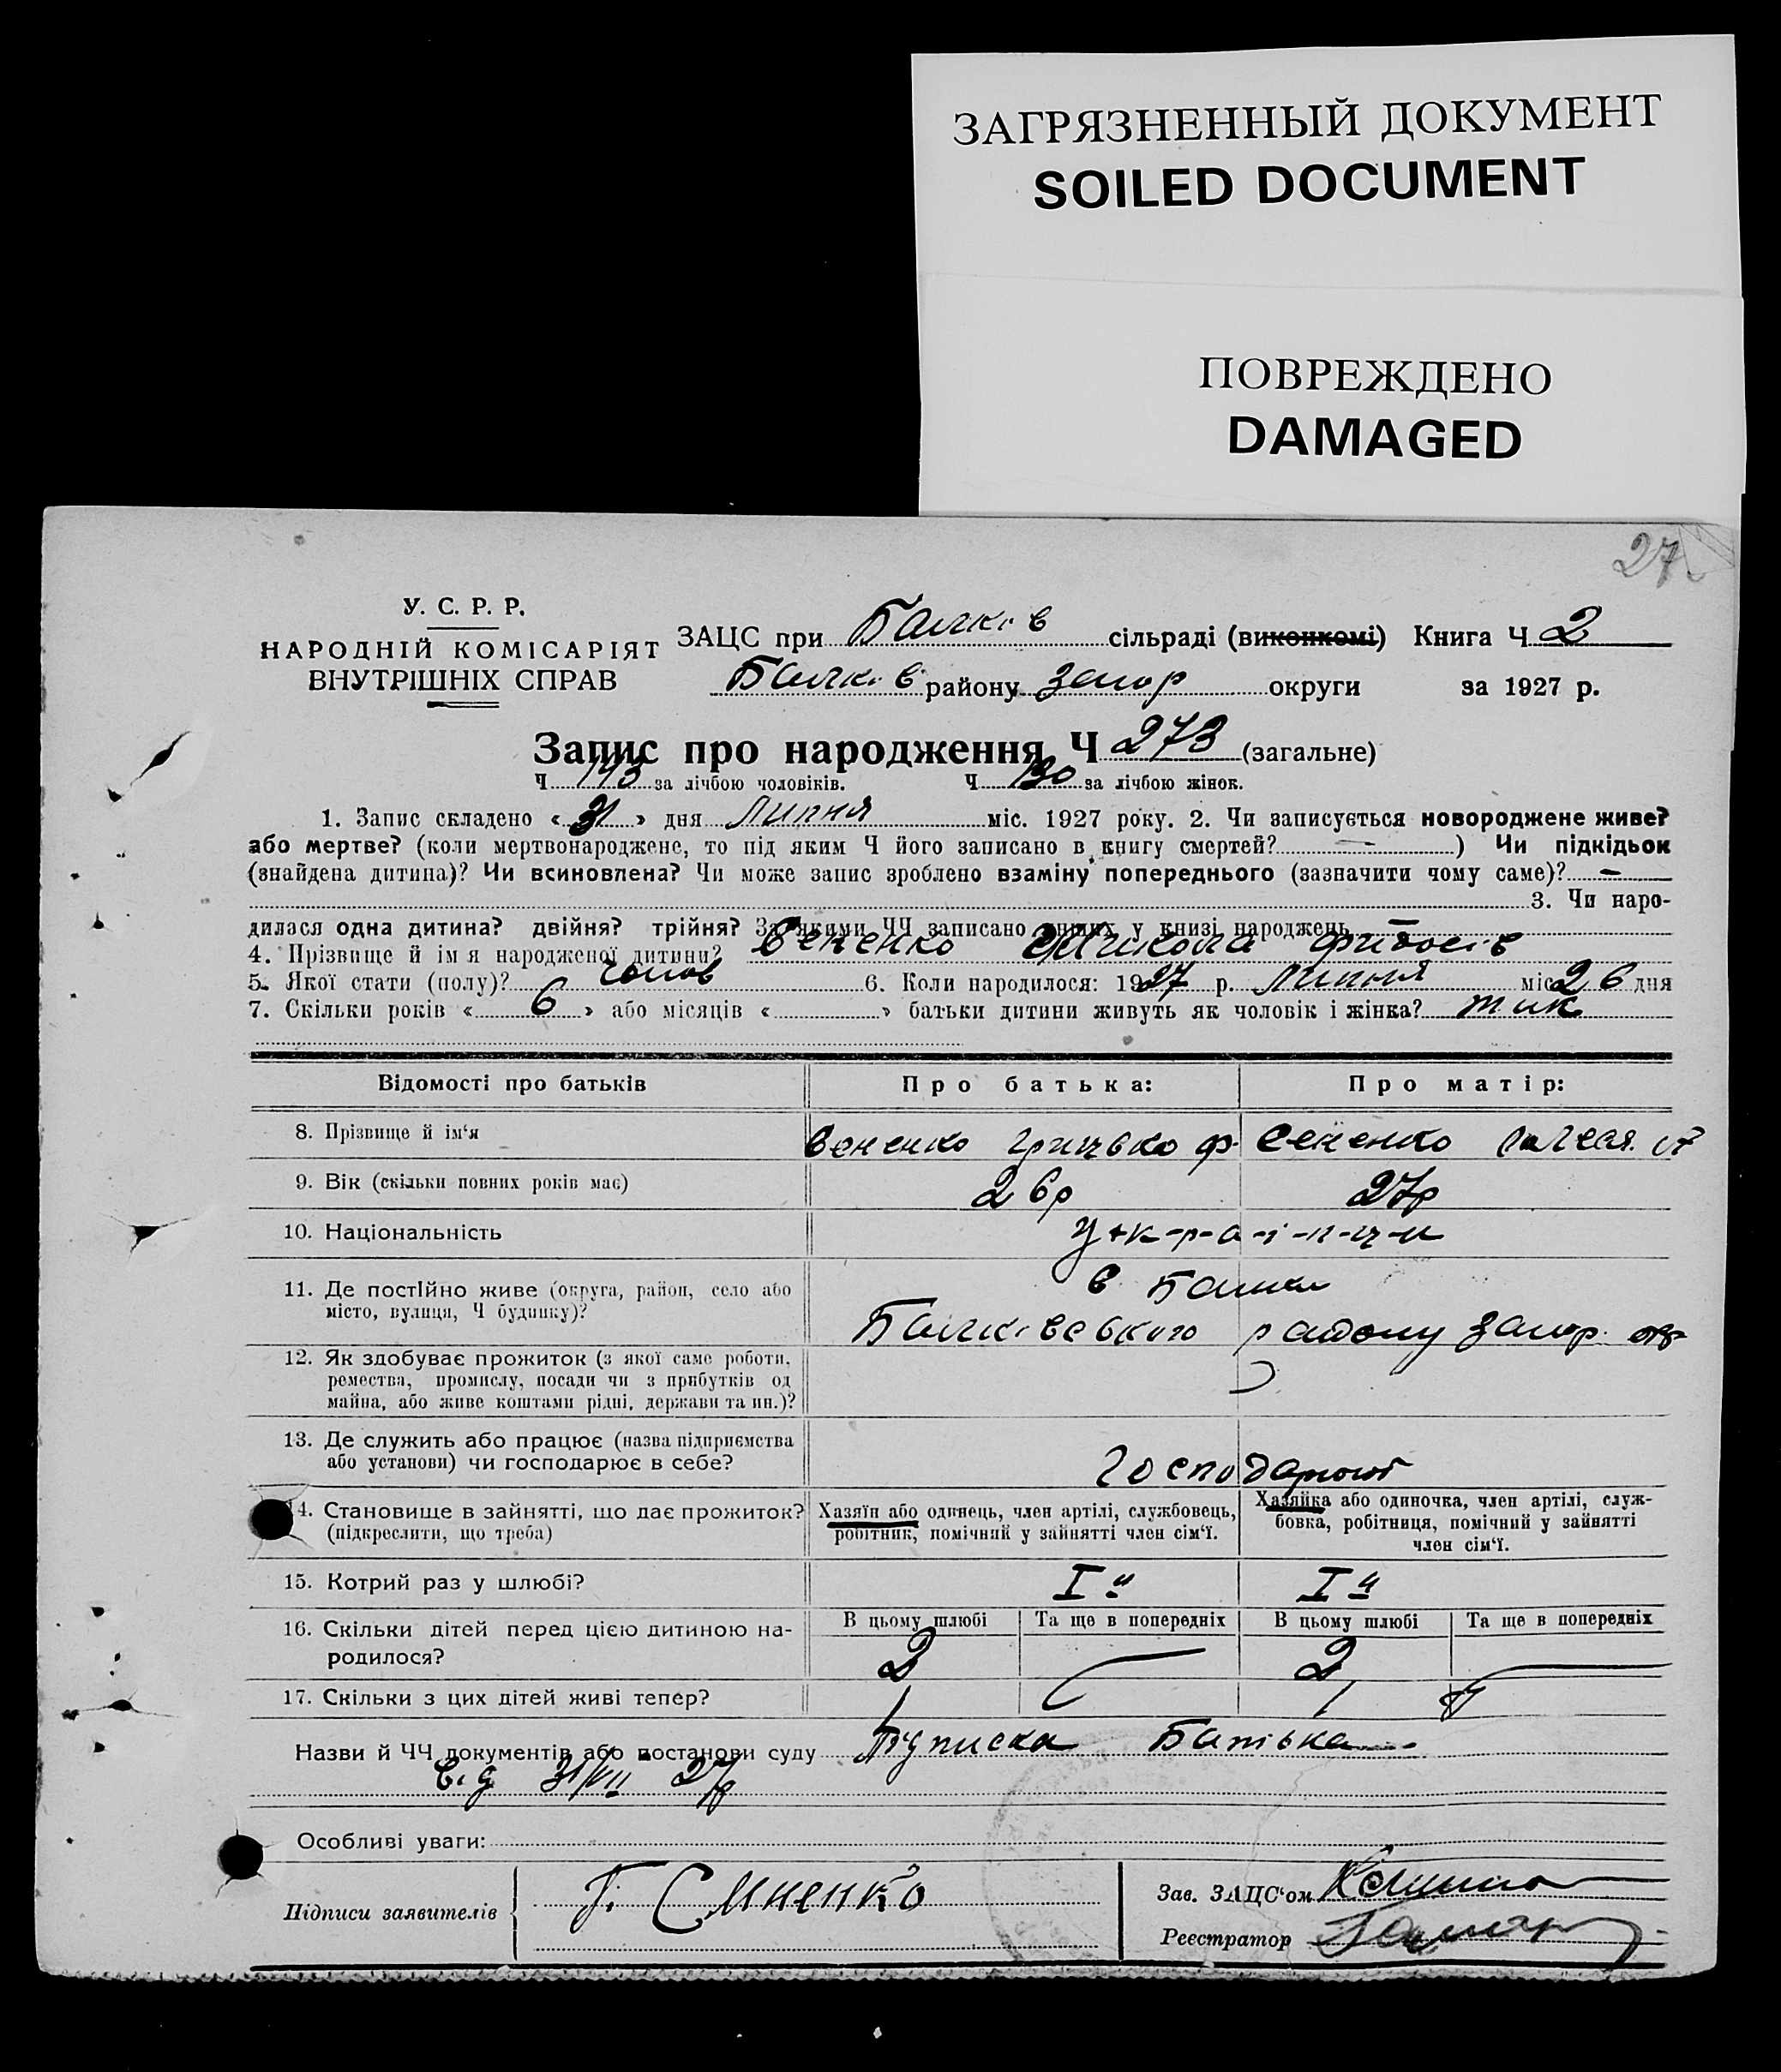 ЗАГРЯЗНЕННЫЙ ДОКУМЕНТ
SOILED DOCUMENT
ПОВРЕЖДЕНО
DAMAGED
27
У. С. Р. Р.
НАРОДНІЙ КОМІСАРІЯТ
ВНУТРІШНІХ СПРАВ
ЗАЦС при Балків сільраді (виконкомі) Книга Ч 2
Балків району Запор округи за 1927 р.
Запис про народження Ч 273 (загальне)
Ч 143 за лічбою чоловіків. Ч 130 за лічбою жінок.
1. Запис складено « 31 » дня Липня міс. 1927 року. 2. Чи записується новороджене живе?
або мертве? (коли мертвонароджене, то під яким Ч його записано в книгу смертей? — ) Чи підкідьок
(знайдена дитина)? Чи всиновлена? Чи може запис зроблено взаміну попереднього (зазначити чому саме)? —
3. Чи наро-
дилася одна дитина? двійня? трійня? За якими ЧЧ записано инших у книзі народжень —
4. Прізвище й ім я народженої дитини? Сененко Микола
5. Якої стати (полу)? чолов 6. Коли народилося: 1927 р. Липня міс 26 дня
7. Скільки років « 6 » або місяців « » батьки дитини живуть як чоловік і жінка? так
Відомості про батьків Про батька: Про матір:
8. Прізвище й ім‘я Сененко Грицько Ф. Сененко
9. Вік (скільки повних років має) 26р 27р
10. Національність У-к-р-а-ї-н-ц-и
11. Де постійно живе (округа, район, село або в Балках
місто, вулиця, Ч будинку)? Балківського району Запор. окр
12. Як здобуває прожиток (з якої саме роботи,
ремества, промислу, посади чи з прибутків од
майна, або живе коштами рідні, держави та ин.)?
13. Де служить або працює (назва підприємства
або установи) чи господарює в себе? Господарюют
14. Становище в зайнятті, що дає прожиток? Хазяїн або одинець, член артілі, службовець, Хазяйка або одиночка, член артілі, служ-
(підкреслити, що треба) робітник, помічний у зайнятті член сім‘ї. бовка, робітниця, помічний у зайнятті
член сім‘ї.
15. Котрий раз у шлюбі? I й I й
16. Скільки дітей перед цією дитиною на- В цьому шлюбі Та ще в попередніх В цьому шлюбі Та ще в попередніх
родилося? 2 — 2 —
17. Скільки з цих дітей живі тепер? 1 1
Назви й ЧЧ документів або постанови суду Підписка Батівка
Від 31/VII 27р
Особливі уваги:
Підписи заявителів Г. Сененко
Зав. ЗАЦС‘ом
Реєстратор